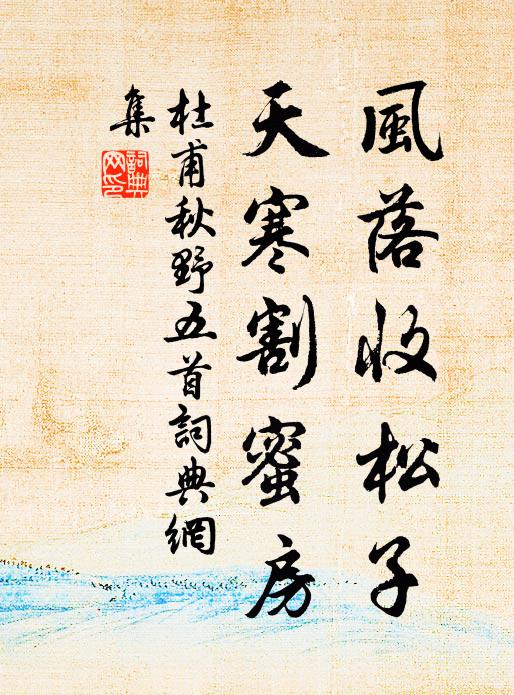 風落收松子
天寒割蜜房
杜甫秋野五首詞典網
集
詞典
网印